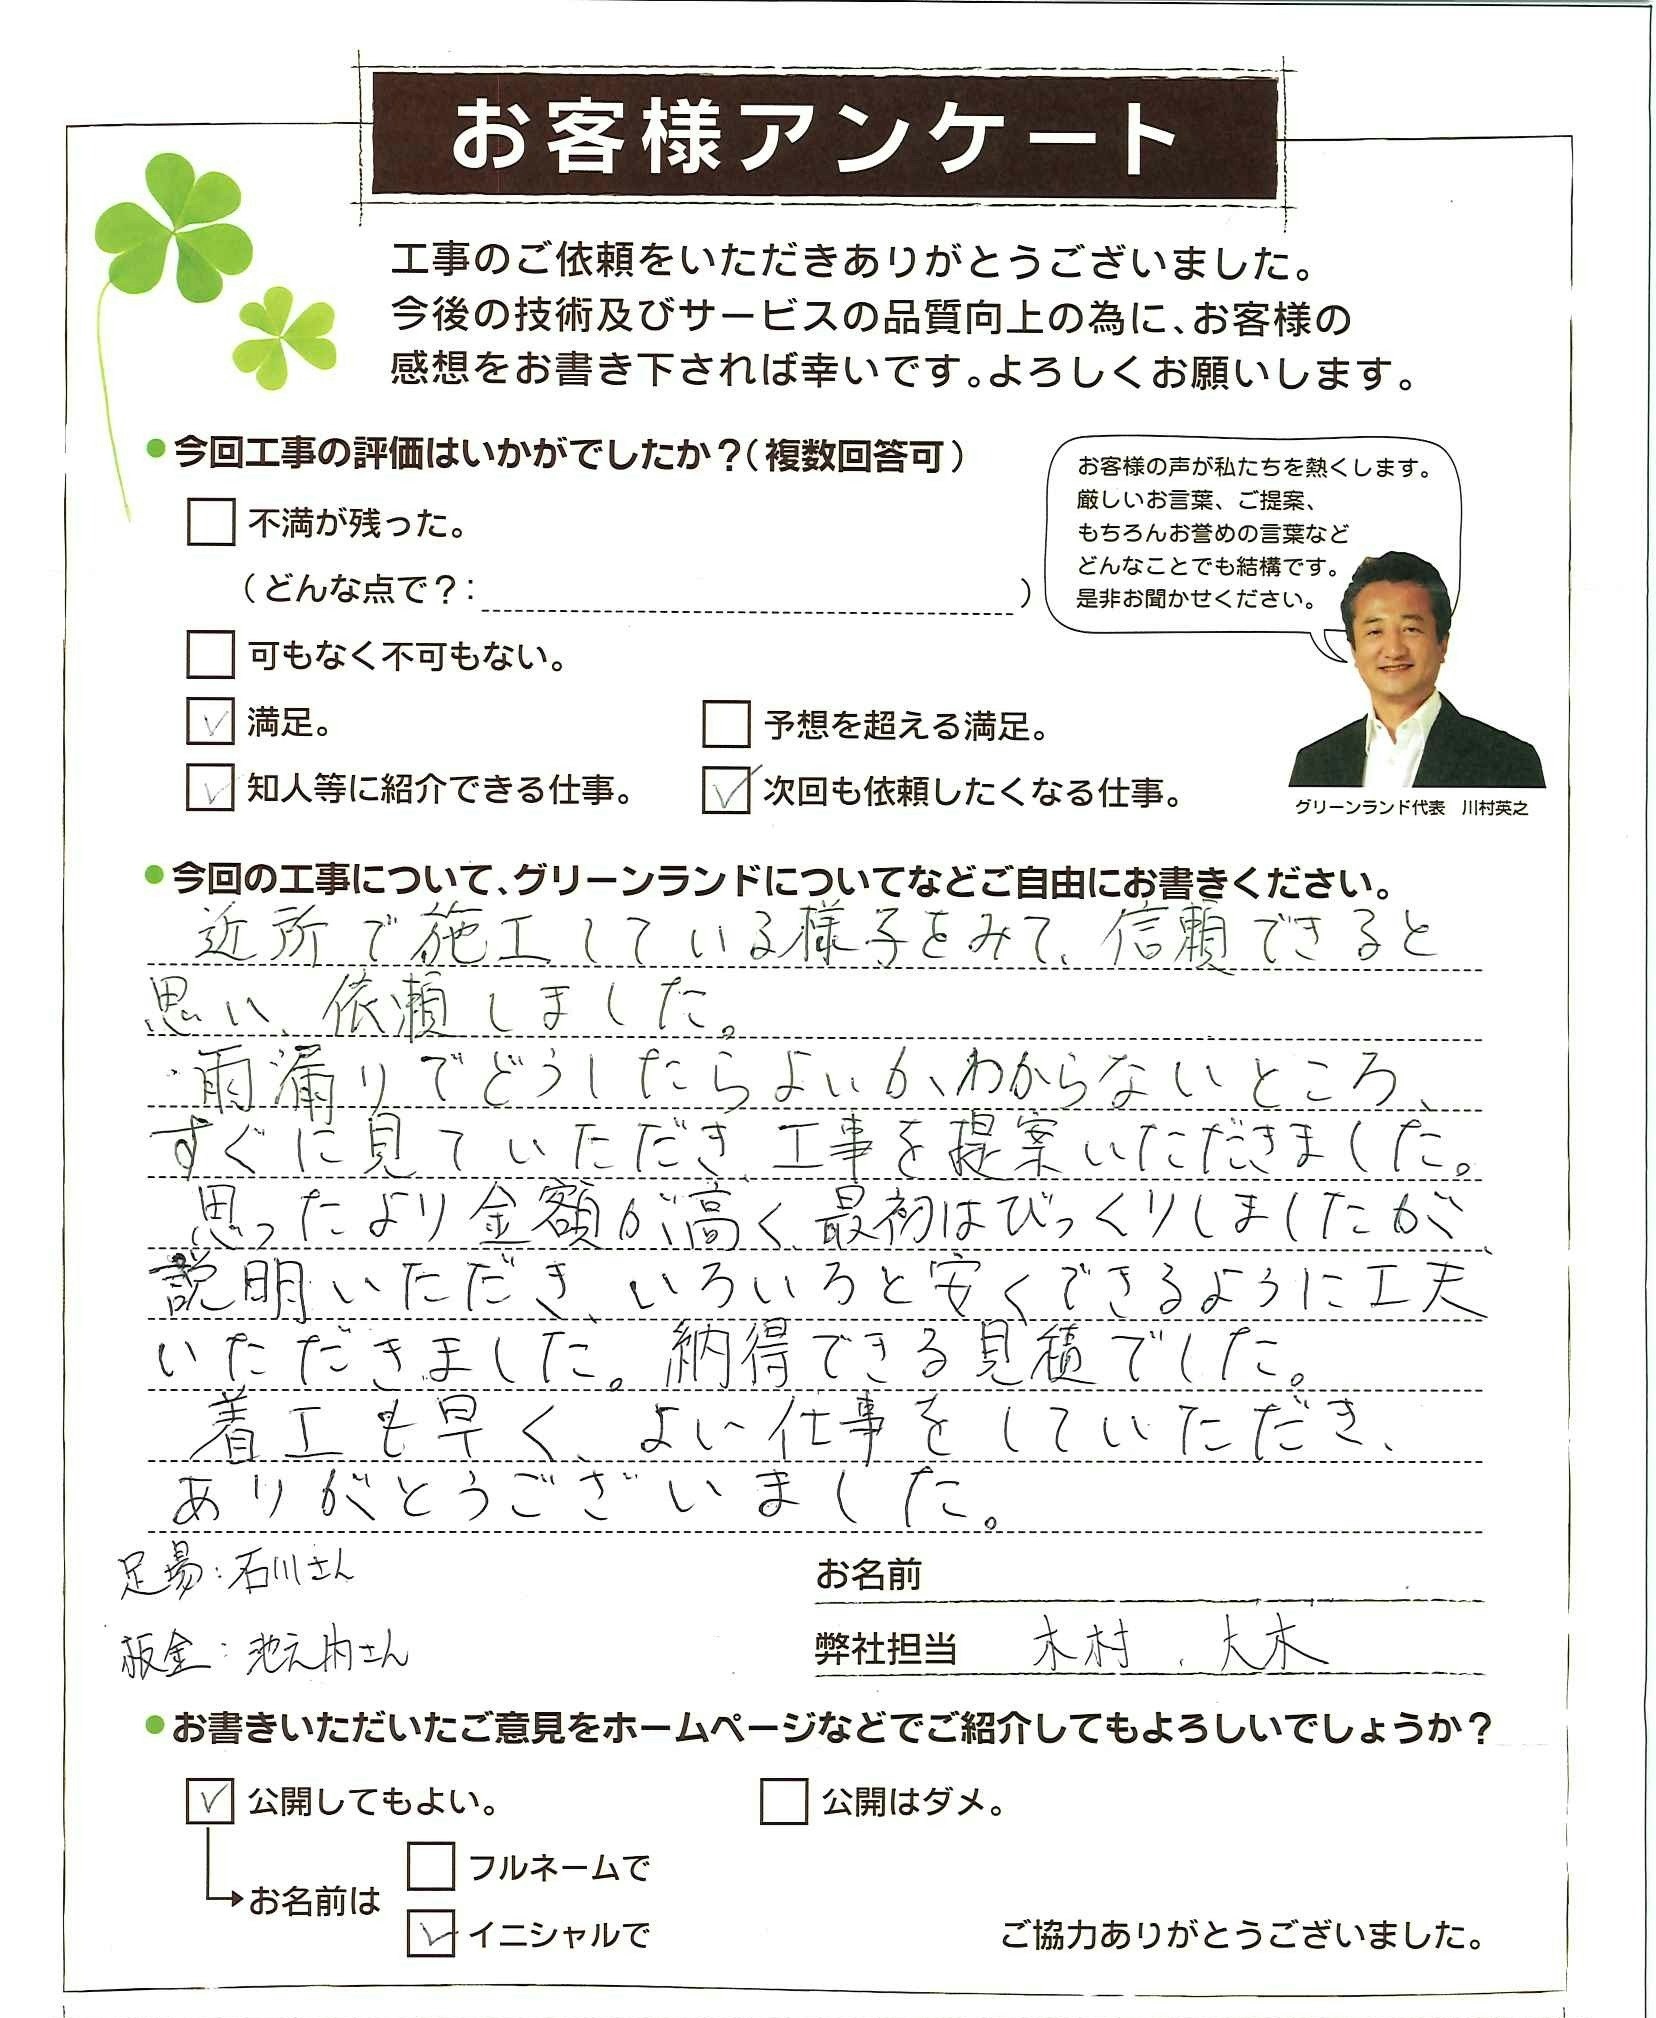 お客様アンケート
工事のご依頼をいただきありがとうございました。
今後の技術及びサービスの品質向上の為に、お客様の
感想をお書き下されば幸いです。よろしくお願いします。
●今回工事の評価はいかがでしたか？（複数回答可）
お客様の声が私たちを熱くします。
厳しいお言葉、ご提案、
もちろんお誉めの言葉など
どんなことでも結構です。
是非お聞かせください。
□ 不満が残った。
（どんな点で？：　）
□ 可もなく不可もない。
☑ 満足。
□ 予想を超える満足。
☑ 知人等に紹介できる仕事。
☑ 次回も依頼したくなる仕事。
グリーンランド代表　川村英之
●今回の工事について、グリーンランドについてなどご自由にお書きください。
近所で施工している様子をみて、信頼できると
思い、依頼しました。
雨漏りでどうしたらよいか、わからないところ、
すぐに見ていただき、工事を提案いただきました。
思ったより金額が高く、最初はびっくりしましたが、
説明いただき、いろいろと安くできるように工夫
いただきました。納得できる見積でした。
着工も早く、よい仕事をしていただき、
ありがとうございました。
足場：石川さん
お名前
板金：池之内さん
弊社担当　木村、大木
●お書きいただいたご意見をホームページなどでご紹介してもよろしいでしょうか？
☑ 公開してもよい。
□ 公開はダメ。
お名前は
□ フルネームで
☑ イニシャルで
ご協力ありがとうございました。